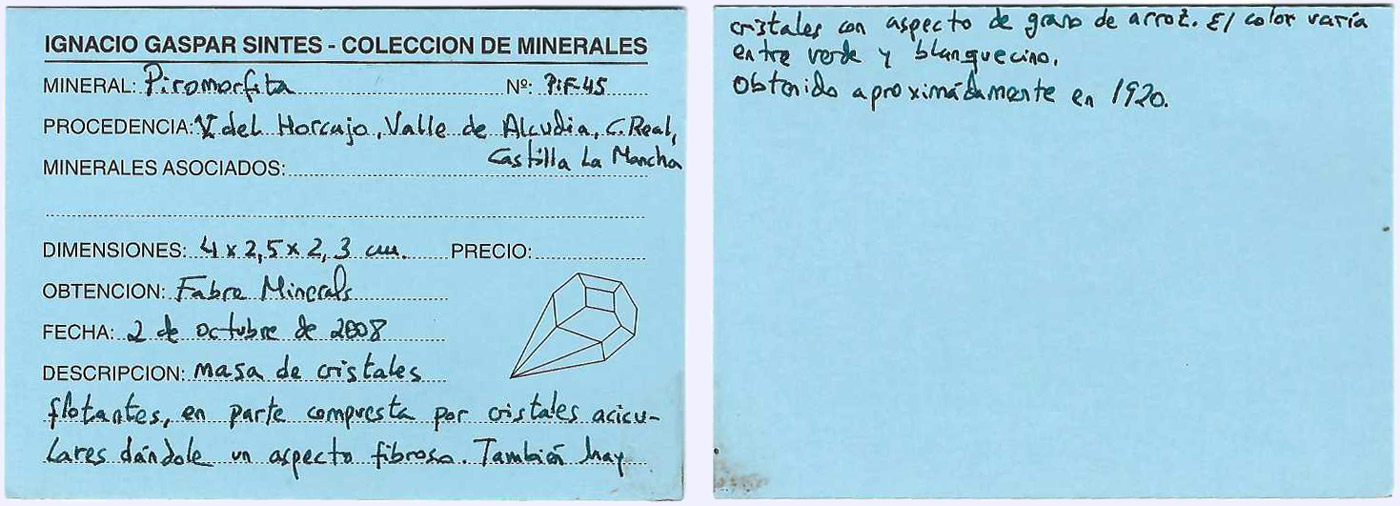 IGNACIO GASPAR SINTES - COLECCION DE MINERALES
MINERAL: Piromorfita Nº: PiF-45
PROCEDENCIA: V. del Horcajo, Valle de Alcudia, C. Real,
Castilla La Mancha
MINERALES ASOCIADOS:
DIMENSIONES: 4 x 2,5 x 2,3 cm. PRECIO:
OBTENCION: Fabre Minerals
FECHA: 2 de octubre de 2008
DESCRIPCION: masa de cristales
flotantes, en parte compuesta por cristales acicu-
lares dándole un aspecto fibroso. También hay
cristales con aspecto de grano de arroz. El color varía
entre verde y blanquecino.
Obtenido aproximádamente en 1920.